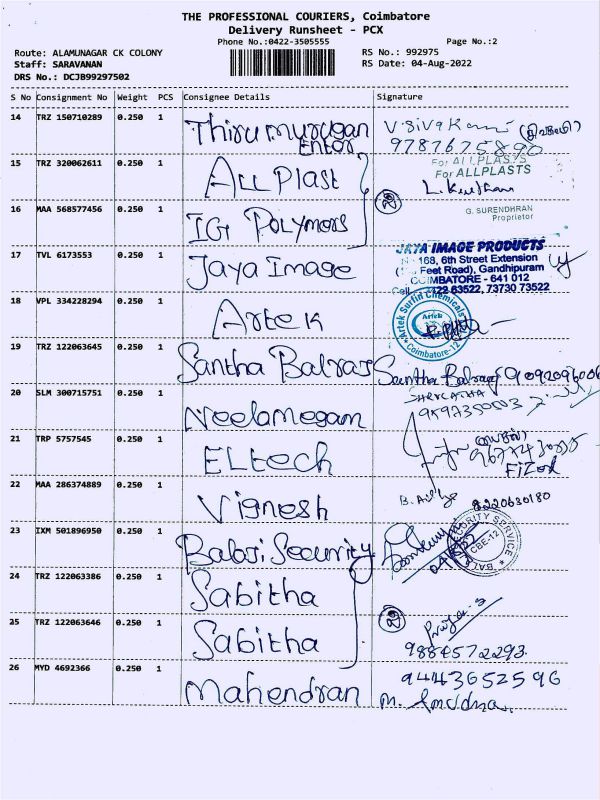 THE PROFESSIONAL COURIERS, Coimbatore
Delivery Runsheet - PCX
Phone No.:0422-3505555 Page No.:2
Route: ALAMUNAGAR CK COLONY RS No.: 992975
Staff: SARAVANAN RS Date: 04-Aug-2022
DRS No.: DCJB99297502
S No Consignment No Weight PCS Consignee Details Signature
14 TRZ 150710289 0.250 1 Thirumurugan
Enter
9787675890
15 TRZ 320062611 0.250 1 ALL Plast
For ALLPLASTS
For ALLPLASTS
16 MAA 568577456 0.250 1 IG Polymors
G. SURENDHRAN
Proprietor
17 TVL 6173553 0.250 1 Jaya Image
JAYA IMAGE PRODUCTS
168, 6th Street Extension
Feet Road), Gandhipuram
COIMBATORE - 641 012
63522, 73730 73522
18 VPL 334228294 0.250 1 Artek
Artek Surfin Chemicals
Artek
Coimbatore-12
19 TRZ 122063645 0.250 1 Santha Balraj Santha Balraj
20 SLM 300715751 0.250 1 Neelamegam
21 TRP 5757545 0.250 1 ELtech
22 MAA 286374889 0.250 1 Vignesh
8220630180
23 IXM 501896950 0.250 1 Balaji Security
SECURITY SERVICE
CBE-12
24 TRZ 122063386 0.250 1 Sabitha
25 TRZ 122063646 0.250 1 Sabitha
9884572293
26 MYD 4692366 0.250 1 Mahendran 9443652596